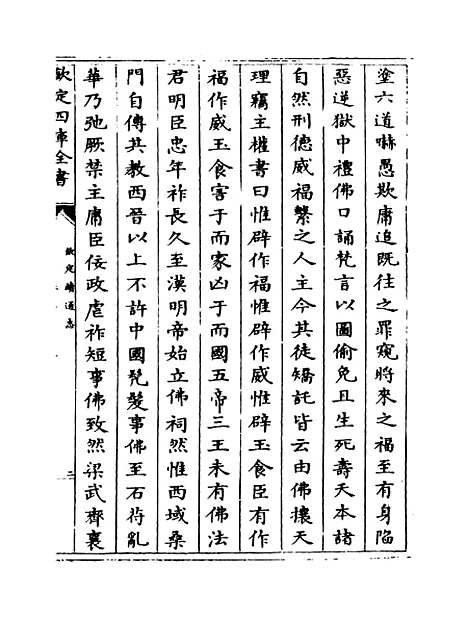 塗六道嚇愚欺庸追既往之罪窺將來之福至有身陷
惡逆獄中禮佛口誦梵言以圖偷免且生死壽夭本諸
自然刑德威福繫之人主今其徒矯託皆云由佛攘天
理竊主權書曰惟辟作福惟辟作威惟辟玉食臣有作
福作威玉食害于而家凶于而國五帝三王未有佛法
君明臣忠年祚長久至漢明帝始立佛祠然惟西域桑
門自傳其教西晉以上不許中國髠髮事佛至石苻亂
華乃弛厥禁主庸臣佞政虐祚短事佛致然梁武齊襄
欽定四庫全書
欽定續通志
三